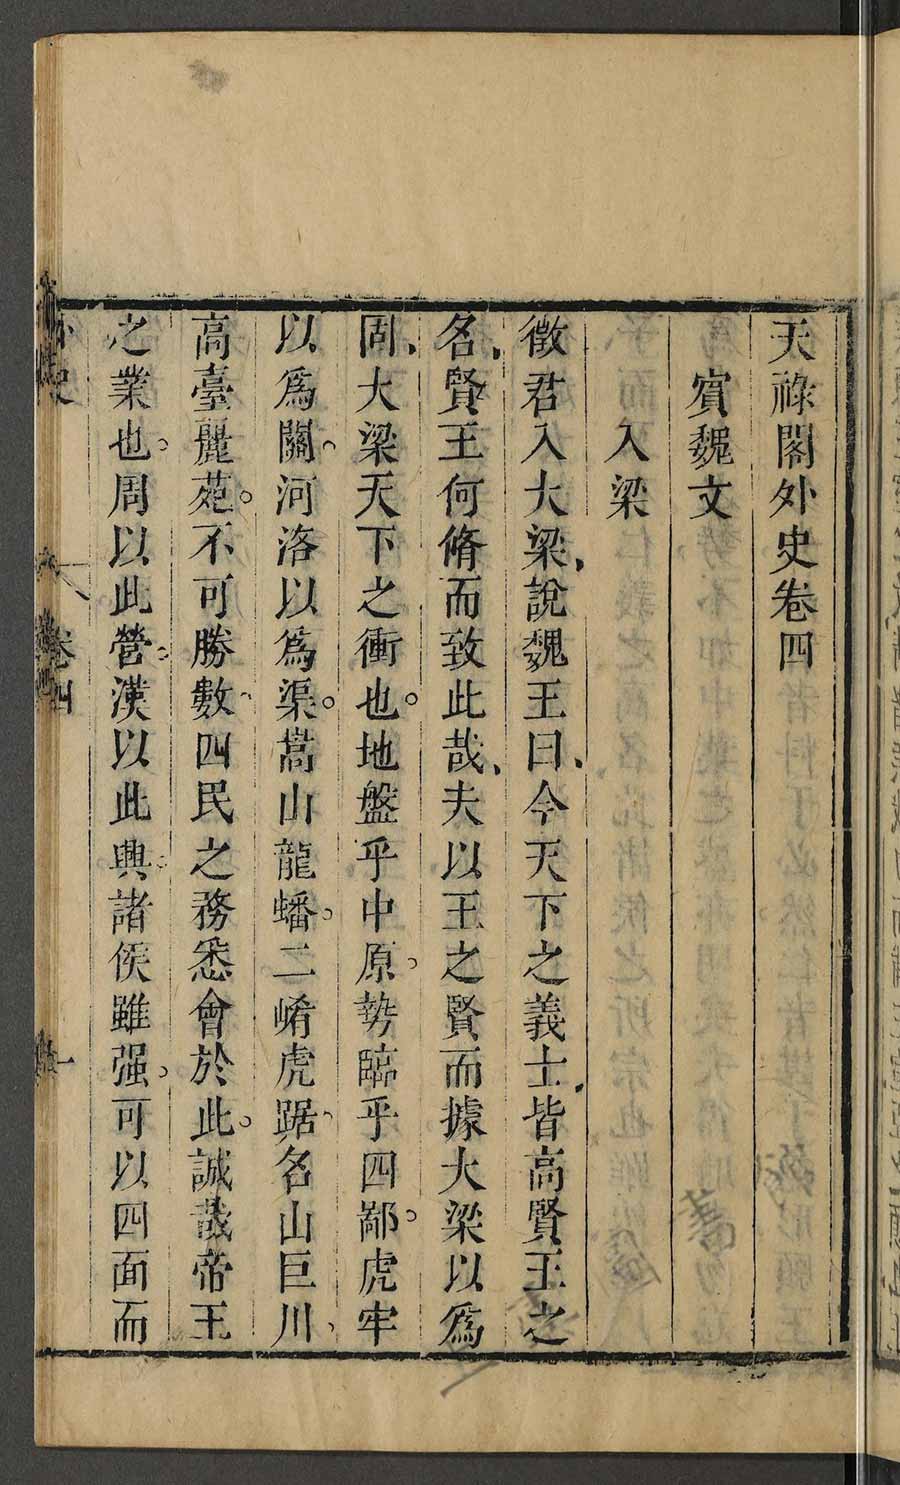 天祿閣外史卷四
賓魏文
入梁
徵君入大梁、說魏王曰、今天下之義士、皆高賢王之
名、賢王何脩而致此哉、夫以王之賢而據大梁以爲
固、大梁天下之衝也。地盤乎中原。勢臨乎四鄙。虎牢
以爲關。河洛以爲渠。嵩山龍蟠。二崤虎踞。名山巨川、
高臺麗苑。不可勝數。四民之務悉會於此。誠哉帝王
之業也。周以此營。漢以此興。諸侯雖强。可以四面而
外史
卷四
一